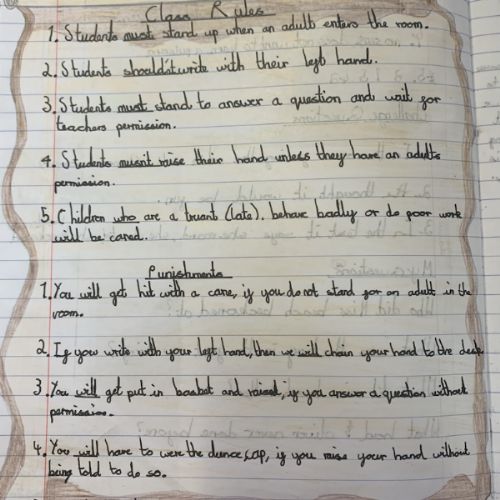 Class Rules
1. Students must stand up when an adult enters the room.
2. Students shouldn't write with their left hand.
3. Students must stand to answer a question and wait for
teachers permission.
4. Students musn't raise their hand unless they have an adults
permission.
5. Children who are a truant (late). behave badly or do poor work
will be caned.
Punishments
1. You will get hit with a cane, if you do not stand for an adult in the
room.
2. If you write with your left hand, then we will chain your hand to the desk
3. You will get put in basket and raised, if you answer a question without
permission.
4. You will have to were the dunce cap, if you raise your hand without
being told to do so.